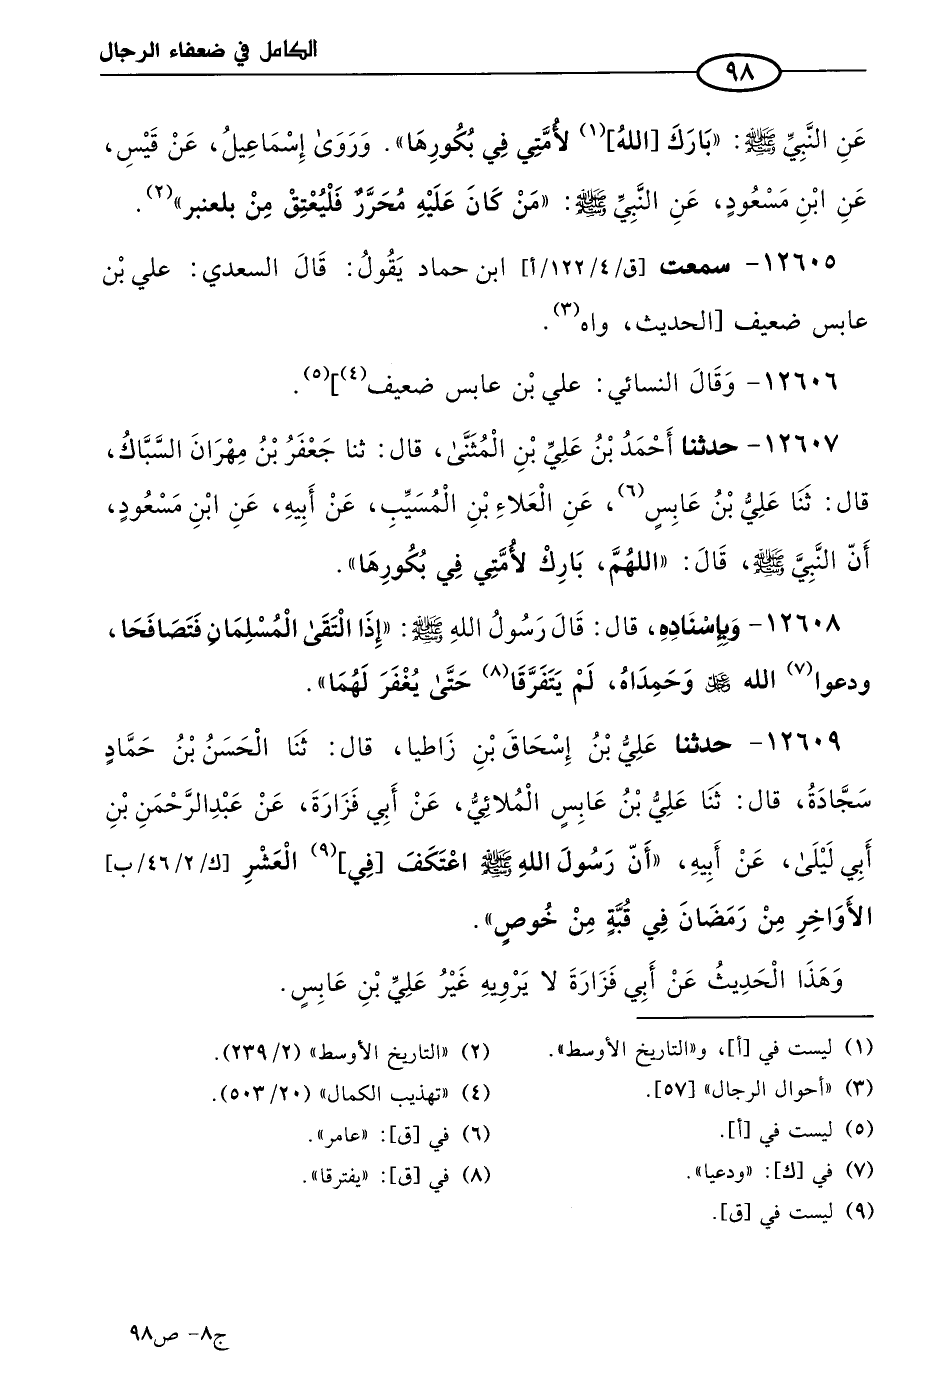 الكامل في ضعفاء الرجال
٩٨
عَنِ النَّبِيِّ ﷺ: «بَارَكَ [اللهُ](١) لأُمَّتِي فِي بُكُورِهَا». وَرَوَىٰ إِسْمَاعِيلُ، عَنْ قَيْسٍ،
عَنِ ابْنِ مَسْعُودٍ، عَنِ النَّبِيِّ ﷺ: «مَنْ كَانَ عَلَيْهِ مُحَرَّرٌ فَلْيُعْتِقْ مِنْ بلعنبر»(٢).
١٢٦٠٥- سمعت [ق/٤/١٢٢/أ] ابن حماد يَقُولُ: قَالَ السعدي: علي بْن
عابس ضعيف [الحديث، واه(٣).
١٢٦٠٦- وَقَالَ النسائي: علي بْن عابس ضعيف(٤)](٥).
١٢٦٠٧- حدثنا أَحْمَدُ بْنُ عَلِيِّ بْنِ الْمُثَنَّىٰ، قال: ثنا جَعْفَرُ بْنُ مِهْرَانَ السَّبَّاكُ،
قال: ثَنَا عَلِيُّ بْنُ عَابِسٍ(٦)، عَنِ الْعَلاءِ بْنِ الْمُسَيِّبِ، عَنْ أَبِيهِ، عَنِ ابْنِ مَسْعُودٍ،
أَنّ النَّبِيَّ ﷺ، قَالَ: «اللهُمَّ، بَارِكْ لأُمَّتِي فِي بُكُورِهَا».
١٢٦٠٨- وَبِإِسْنَادِهِ، قال: قَالَ رَسُولُ اللهِ ﷺ: «إِذَا الْتَقَىٰ الْمُسْلِمَانِ فَتَصَافَحَا،
ودعوا(٧) الله ﷿ وَحَمِدَاهُ، لَمْ يَتَفَرَّقَا(٨) حَتَّىٰ يُغْفَرَ لَهُمَا».
١٢٦٠٩- حدثنا عَلِيُّ بْنُ إِسْحَاقَ بْنِ زَاطيا، قال: ثَنَا الْحَسَنُ بْنُ حَمَّادٍ
سَجَّادَةُ، قال: ثَنَا عَلِيُّ بْنُ عَابِسٍ الْمُلائِيُّ، عَنْ أَبِي فَزَارَةَ، عَنْ عَبْدِالرَّحْمَنِ بْنِ
أَبِي لَيْلَىٰ، عَنْ أَبِيهِ، «أَنّ رَسُولَ اللهِ ﷺ اعْتَكَفَ [فِي](٩) الْعَشْرِ [ك/٤٦/٢/ب]
الأَوَاخِرِ مِنْ رَمَضَانَ فِي قُبَّةٍ مِنْ خُوصٍ».
وَهَذَا الْحَدِيثُ عَنْ أَبِي فَزَارَةَ لا يَرْوِيهِ غَيْرُ عَلِيِّ بْنِ عَابِسٍ.
(١) ليست في [أ]، و«التاريخ الأوسط».
(٢) «التاريخ الأوسط» (٢/٢٣٩).
(٣) «أحوال الرجال» [٥٧].
(٤) «تهذيب الكمال» (٢٠/٥٠٣).
(٥) ليست في [أ].
(٦) في [ق]: «عامر».
(٧) في [ك]: «ودعيا».
(٨) في [ق]: «يفترقا».
(٩) ليست في [ق].
ج٨- ص٩٨